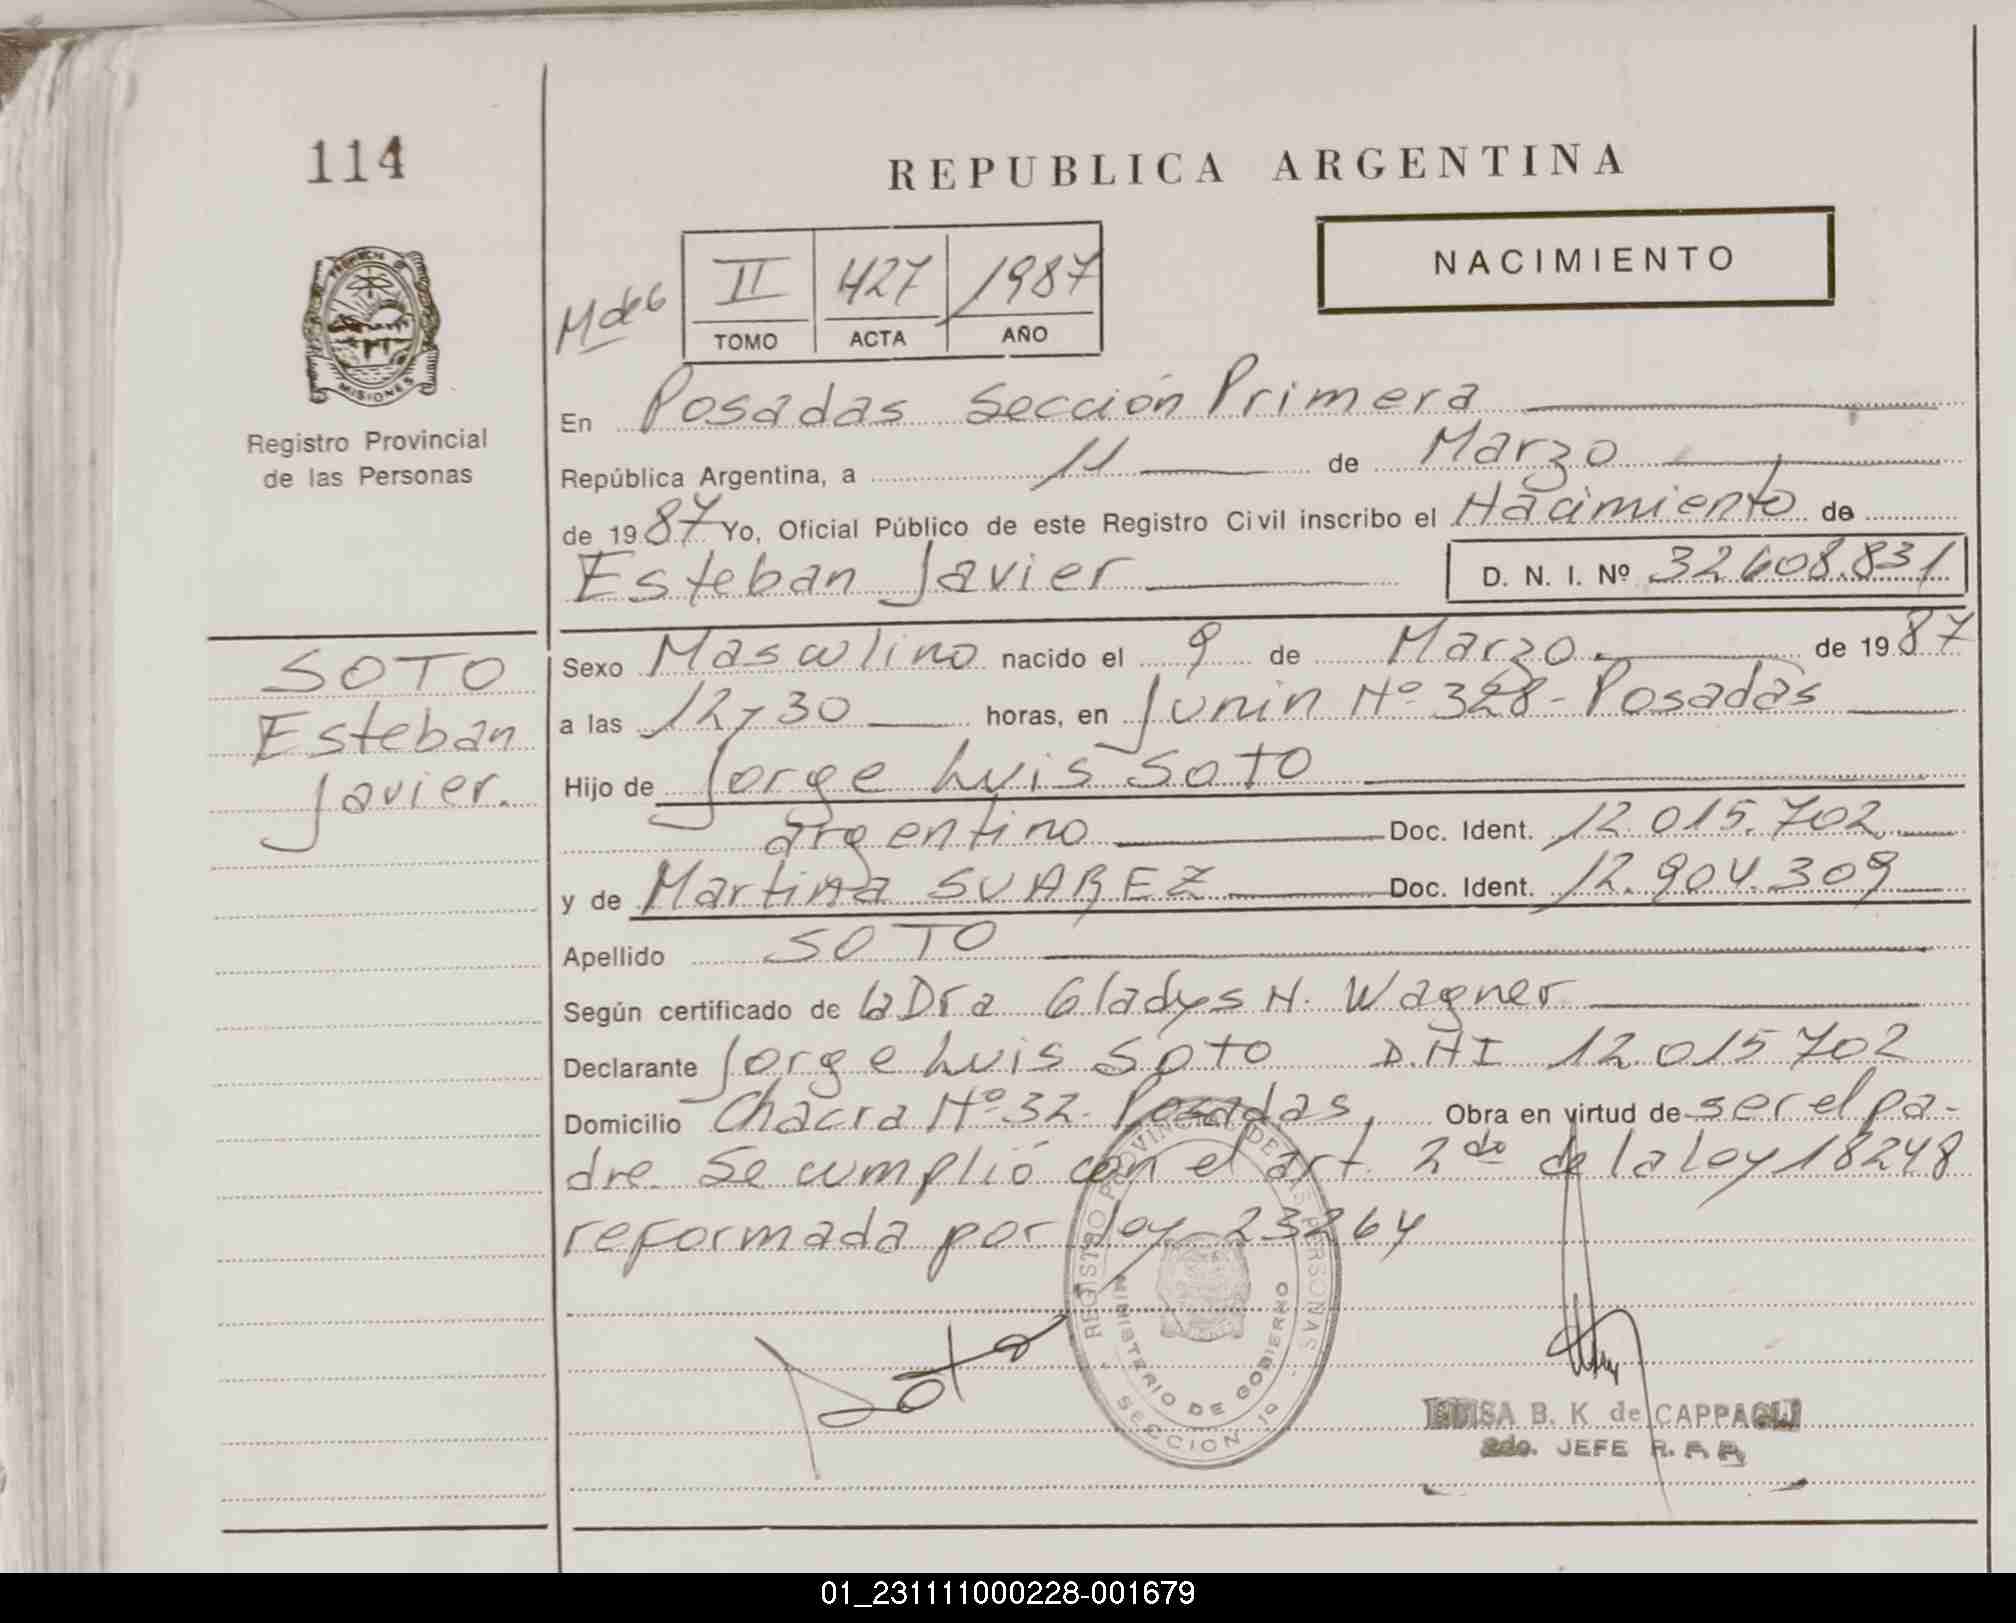 114
REPUBLICA ARGENTINA
NACIMIENTO
II 427 1987
TOMO ACTA AÑO
MISIONES
Registro Provincial
de las Personas
En Posadas Sección Primera
República Argentina, a 11 de Marzo
de 1987 Yo, Oficial Público de este Registro Civil inscribo el Nacimiento de
Esteban Javier D. N. I. Nº 32.608.831
SOTO
Esteban
Javier.
Sexo Masculino nacido el 9 de Marzo de 1987
a las 12,30 horas, en Junin Nº 328 - Posadas
Hijo de Jorge Luis Soto
argentino Doc. Ident. 12.015.702
y de Martina SUAREZ Doc. Ident. 12.904.309
Apellido SOTO
Según certificado de la Dra Gladys N. Wagner
Declarante Jorge Luis Soto D.N.I 12.015702
Domicilio Chacra Nº 32- Posadas. Obra en virtud de ser el pa-
dre. Se cumplió con el art. 2do de la Ley 18248
reformada por ley 23264
Soto
REGISTRO PROVINCIAL DE LAS PERSONAS
MINISTERIO DE GOBIERNO
SECCION 1º
B. K. de CAPPAGLI
2do. JEFE
01_231111000228-001679